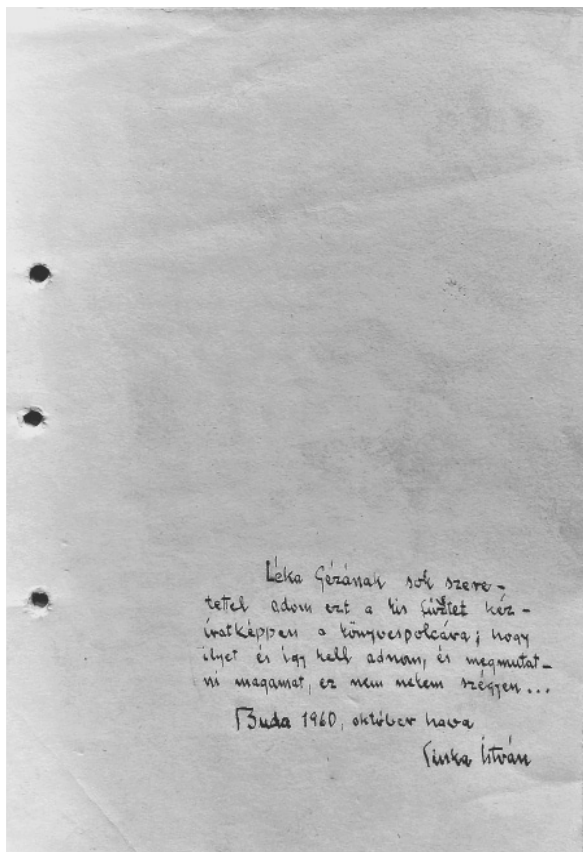 Léka Gézának sok szere-
tettel adom ezt a kis füzetet kéz-
iratképpen a könyvespolcára; hogy
ilyet és így kell adnom, és megmutat-
ni magamat, ez nem nekem szégyen...
Buda 1960, október hava
Sinka István